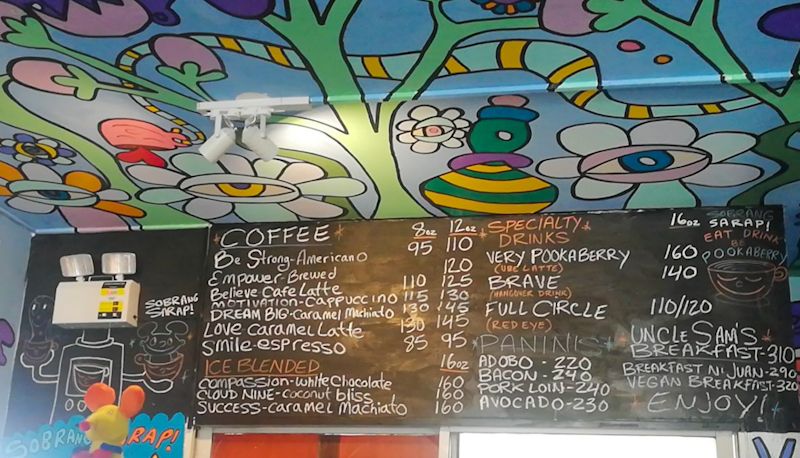 COFFEE 8oz 12oz
Be Strong-Americano 95 110
Empower-Brewed 120
Believe Cafe Latte 110 130
Motivation-Cappuccino 115 130
DREAM BIG-Caramel Machiato 130 145
Love Caramel Latte 130 145
Smile-espresso 85 95
ICE BLENDED 16oz
Compassion-White Chocolate 160
CLOUD NINE-Coconut bliss 160
SUCCESS-Caramel Machiato 160
SPECIALTY 16oz
DRINKS
VERY POOKABERRY 160
(UBE LATTE)
BRAVE 140
(HANGOVER DRINK)
FULL CIRCLE 110/120
(RED EYE)
PANINIS
ADOBO - 220
BACON - 240
PORK LOIN - 240
AVOCADO - 230
UNCLE SAM'S
BREAKFAST-310
BREAKFAST NI JUAN-290
VEGAN BREAKFAST-320
ENJOY!
SOBRANG
SARAP!
EAT DRINK
BE
POOKABERRY
SOBRANG
SARAP!
SOBRANG SARAP!